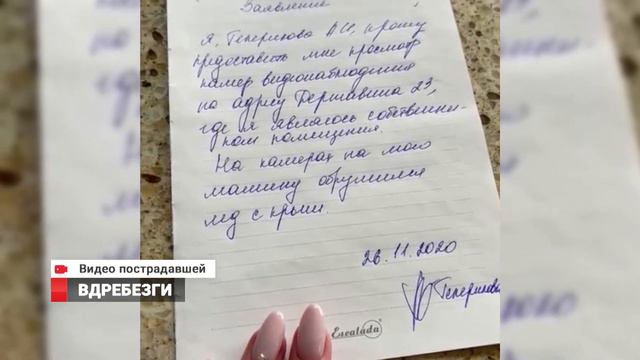 Заявление
Я, Теперикова А.И, прошу
предоставить мне просмотр
камер видеонаблюдения
по адресу Державина 23,
где я являюсь собственни-
ком помещения.
На камерах на мою
машину обрушился
лёд с крыши.
26.11.2020
Видео пострадавшей
ВДРЕБЕЗГИ
Escalada